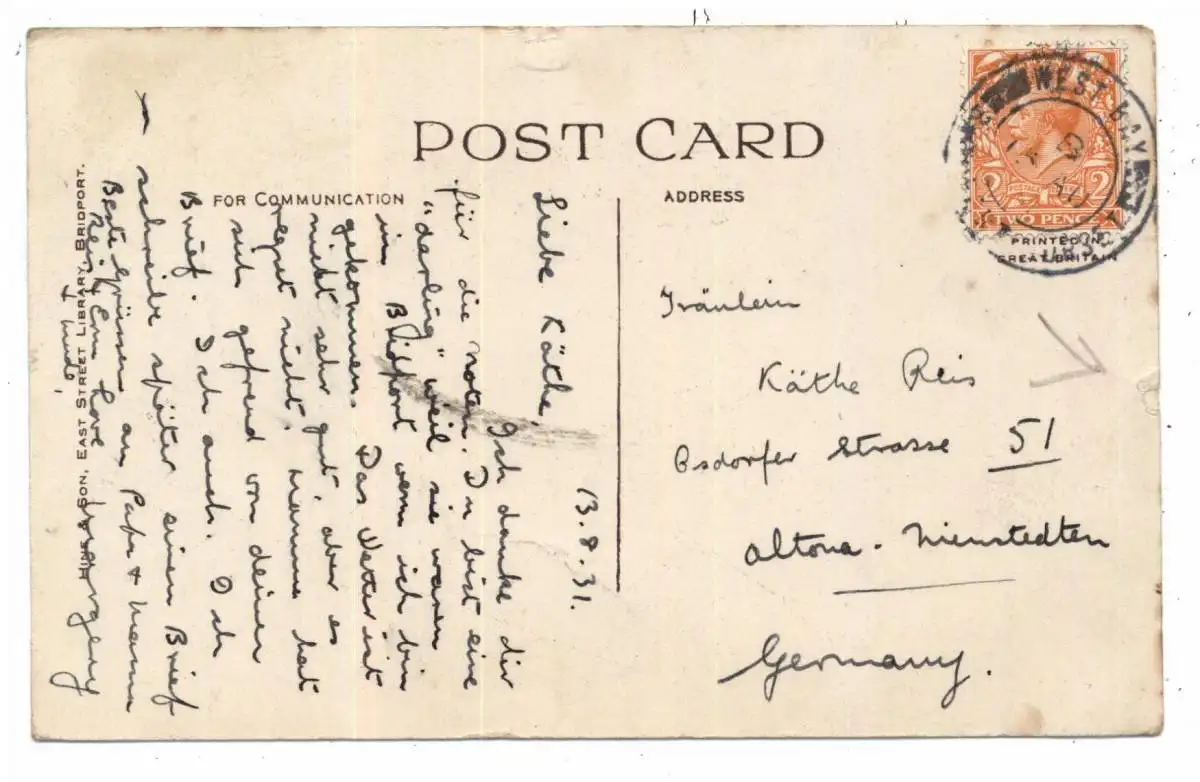 POST CARD
FOR COMMUNICATION
ADDRESS
WEST BAY
TWO PENCE
PRINTED IN
GREAT BRITAIN
13.8.31.
Liebe Käthe,
Ich danke dir
für die Noten. Du bist eine
"darling" weil sie waren
in Bridport wenn ich bin
gekommen. Das Wetter ist
nicht sehr gut, aber es
regnet nicht. Mamma hat
sich gefreud von deinen
Brief. Ich auch. Ich
schreibe später einen Brief
Beste Grüssen an Papa & Mamma
Love
Fräulein
Käthe Reis
Osdorfer Strasse 51
Altona - Nienstedten
Germany.
HINE & SON, EAST STREET LIBRARY, BRIDPORT.